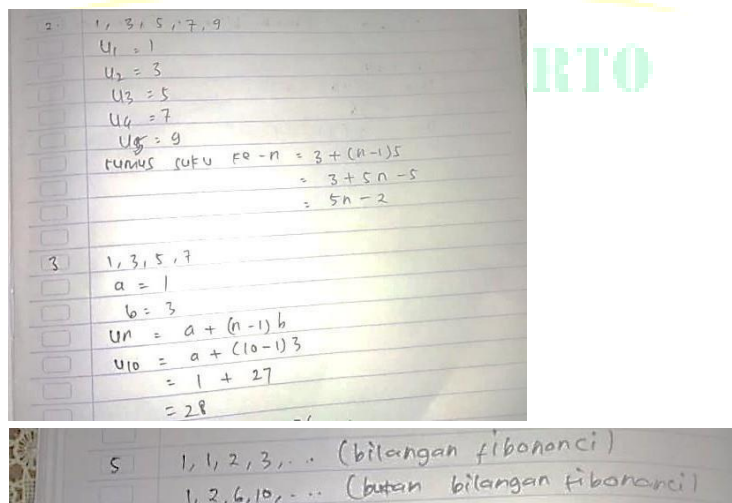 RTO
2. 1, 3, 5, 7, 9
U1 = 1
U2 = 3
U3 = 5
U4 = 7
U5 = 9
rumus suku ke-n = 3 + (n-1)5
= 3 + 5n - 5
= 5n - 2
3 1, 3, 5, 7
a = 1
b = 3
Un = a + (n-1) b
U10 = a + (10-1) 3
= 1 + 27
= 28
5 1, 1, 2, 3, ... (bilangan fibononci)
1, 2, 6, 10, ... (butan bilangan fibononci)